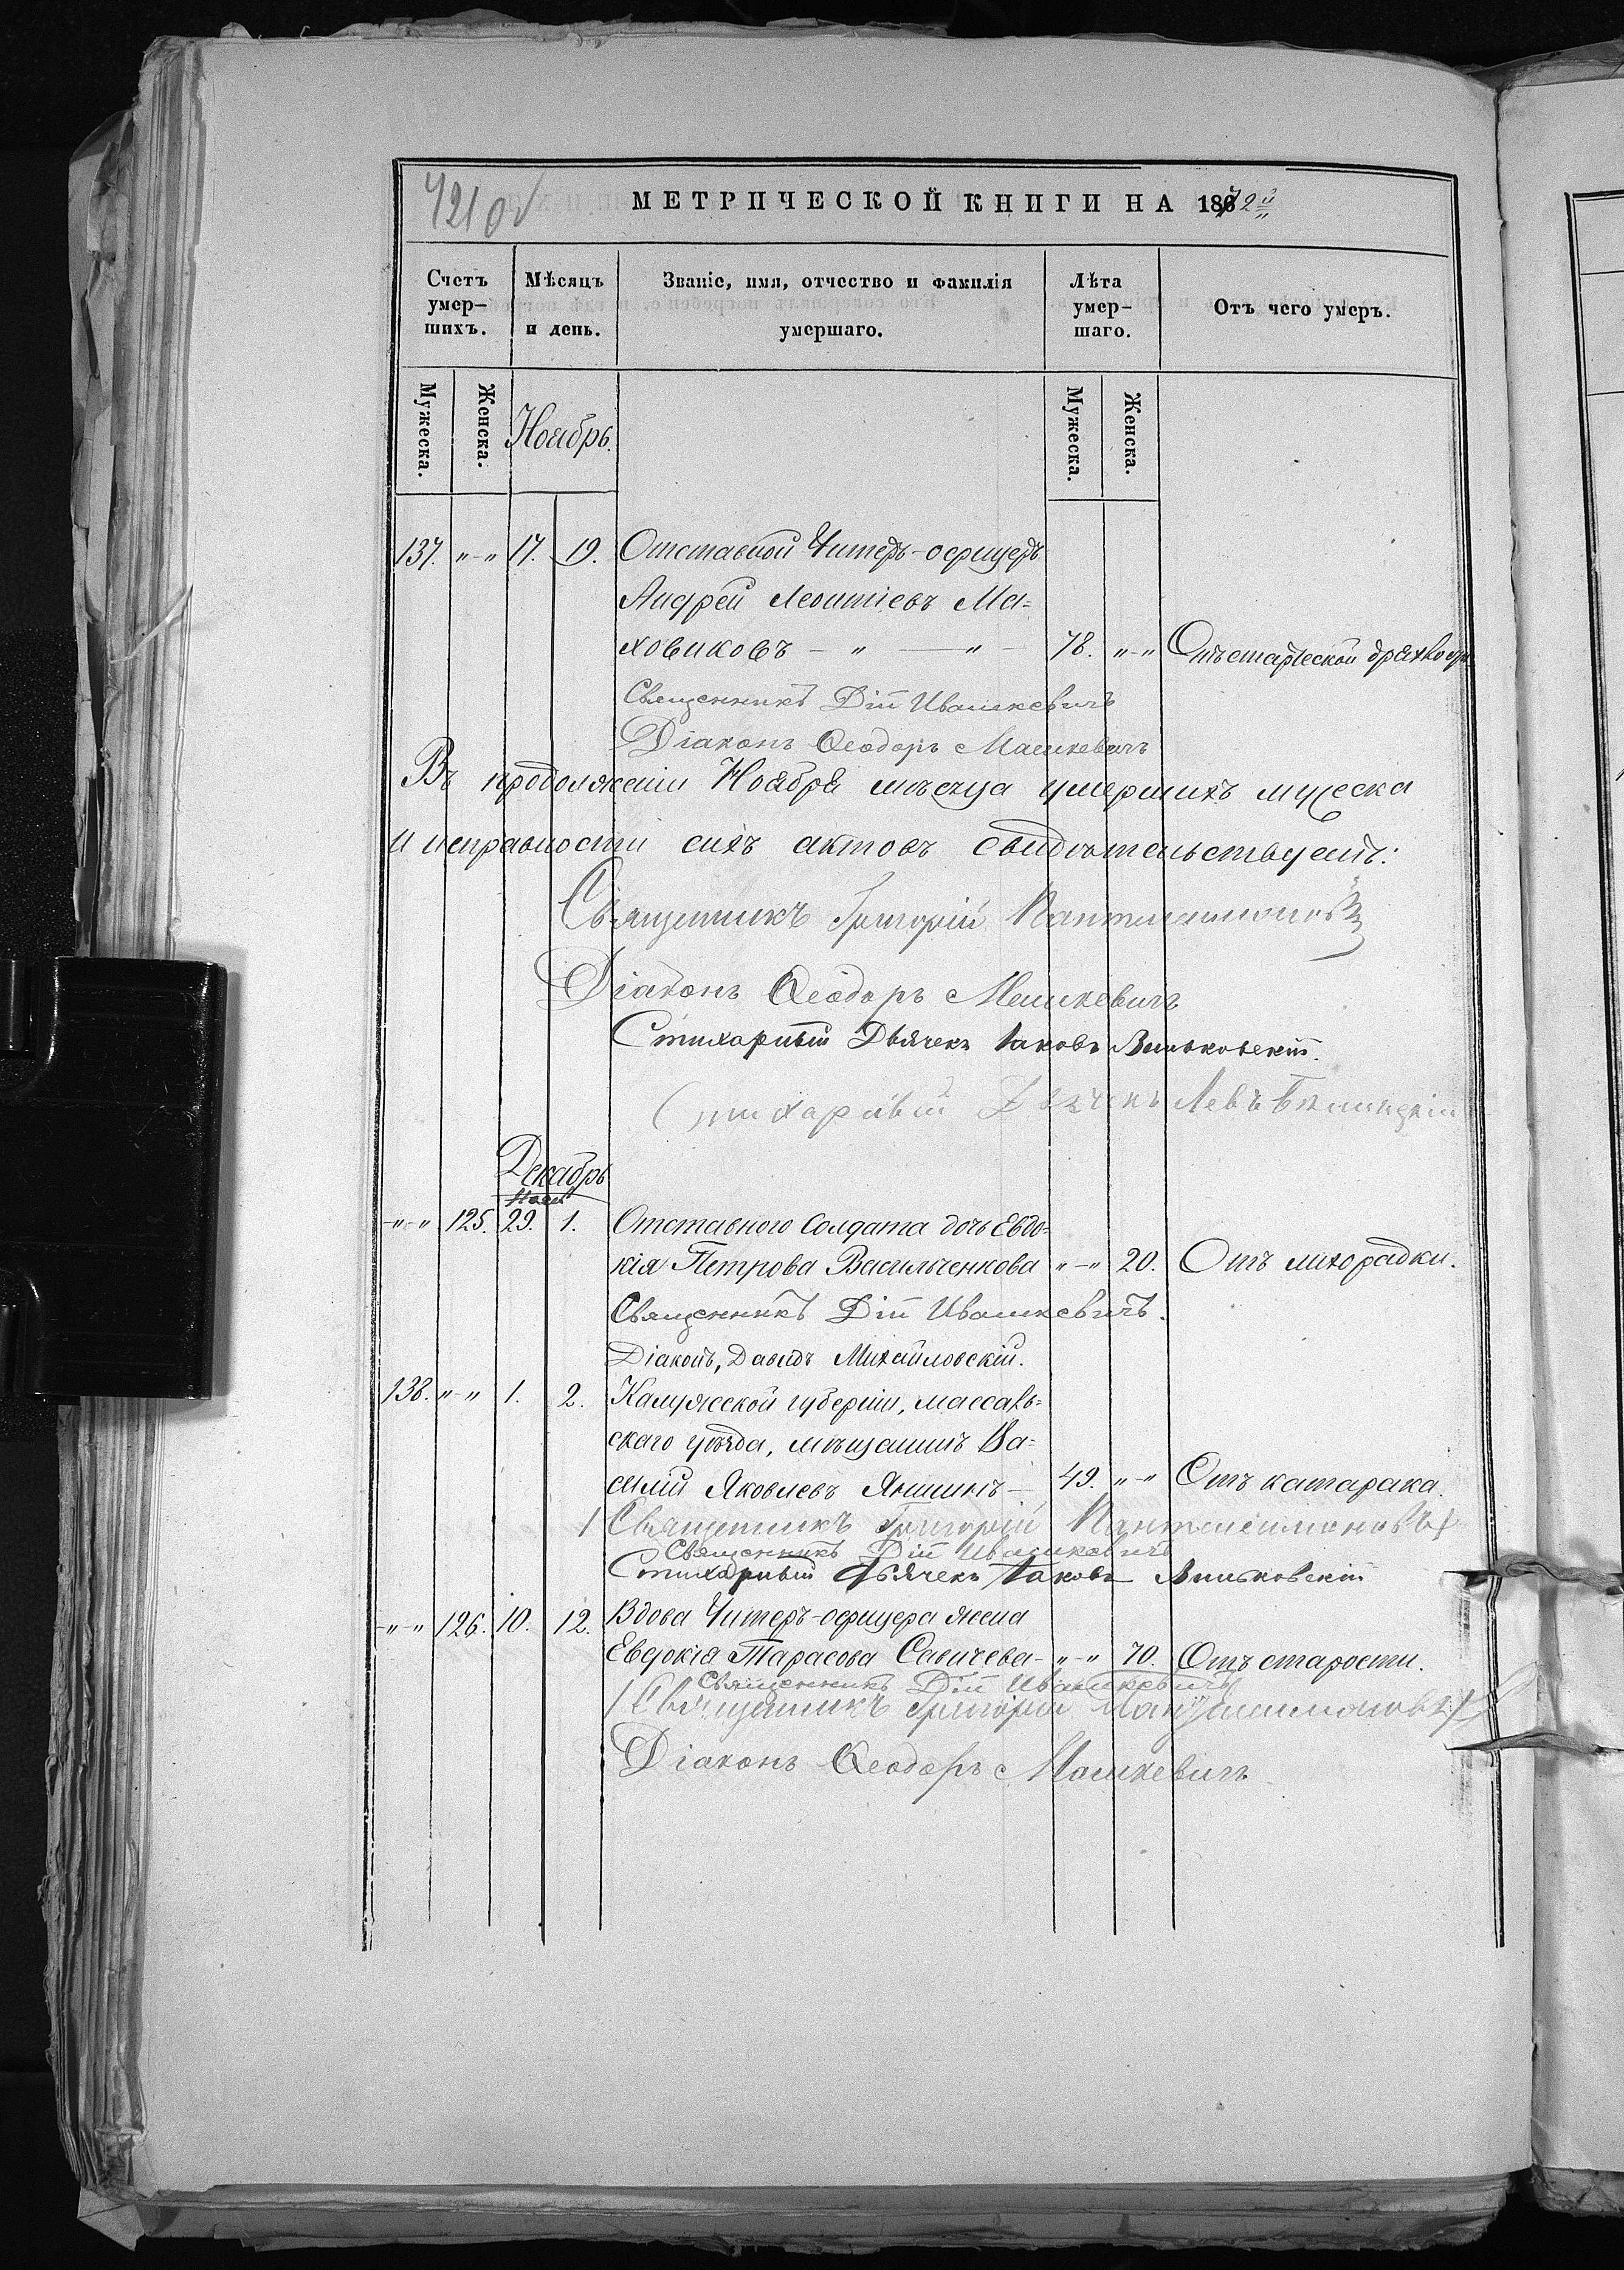 421 об
МЕТРИЧЕСКОЙ КНИГИ НА 1872й
Счетъ умер-шихъ.
Мѣсяцъ и день.
Званіе, имя, отчество и фамилія умершаго.
Лѣта умер-шаго.
Отъ чего умеръ.
Мужеска.
Женска.
Ноябрь.
Мужеска.
Женска.
137. "-" 17. 19. Отставной Унтеръ-офицеръ
Андрей Леонтіевъ Ма=
ховиковъ - " - " - 78. "-" Отъ старческой дряхлости
Священникъ Дій Ивашкевичъ
Діаконъ Ѳеодоръ Машкевичъ
Въ продолженіи Ноября мѣсяца умершихъ мужеска
и исправности сихъ актовъ свидѣтельствуемъ:
Священникъ Григорій Пантелеимоновъ
Діаконъ Ѳеодоръ Машкевичъ
Стихарный Дьячекъ Іаковъ
Стихарный Дьячекъ Левъ
Декабрь
Нояб
"-" 125. 29. 1. Отставного Солдата дочь Евдо=
кія Петрова Васильченкова "-" 20. Отъ лихорадки.
Священникъ Дій Ивашкевичъ.
Діаконъ, Давидъ Михайловскій.
138. "-" 1. 2. Калужской губерніи, массаль=
скаго уѣзда, мѣщанинъ Ва=
силій Яковлевъ Яншинъ - 49. "-" Отъ катарака.
Священникъ Григорій Пантелеимоновъ
Священникъ Дій Ивашкевичъ
Стихарный Дьячекъ Іаковъ
"-" 126. 10. 12. Вдова Унтеръ-офицера жена
Евдокія Тарасова Савичева - "-" 70. Отъ старости.
Священникъ Дій Ивашкевичъ
Священникъ Григорій Пантелеимоновъ
Діаконъ Ѳеодоръ Машкевичъ